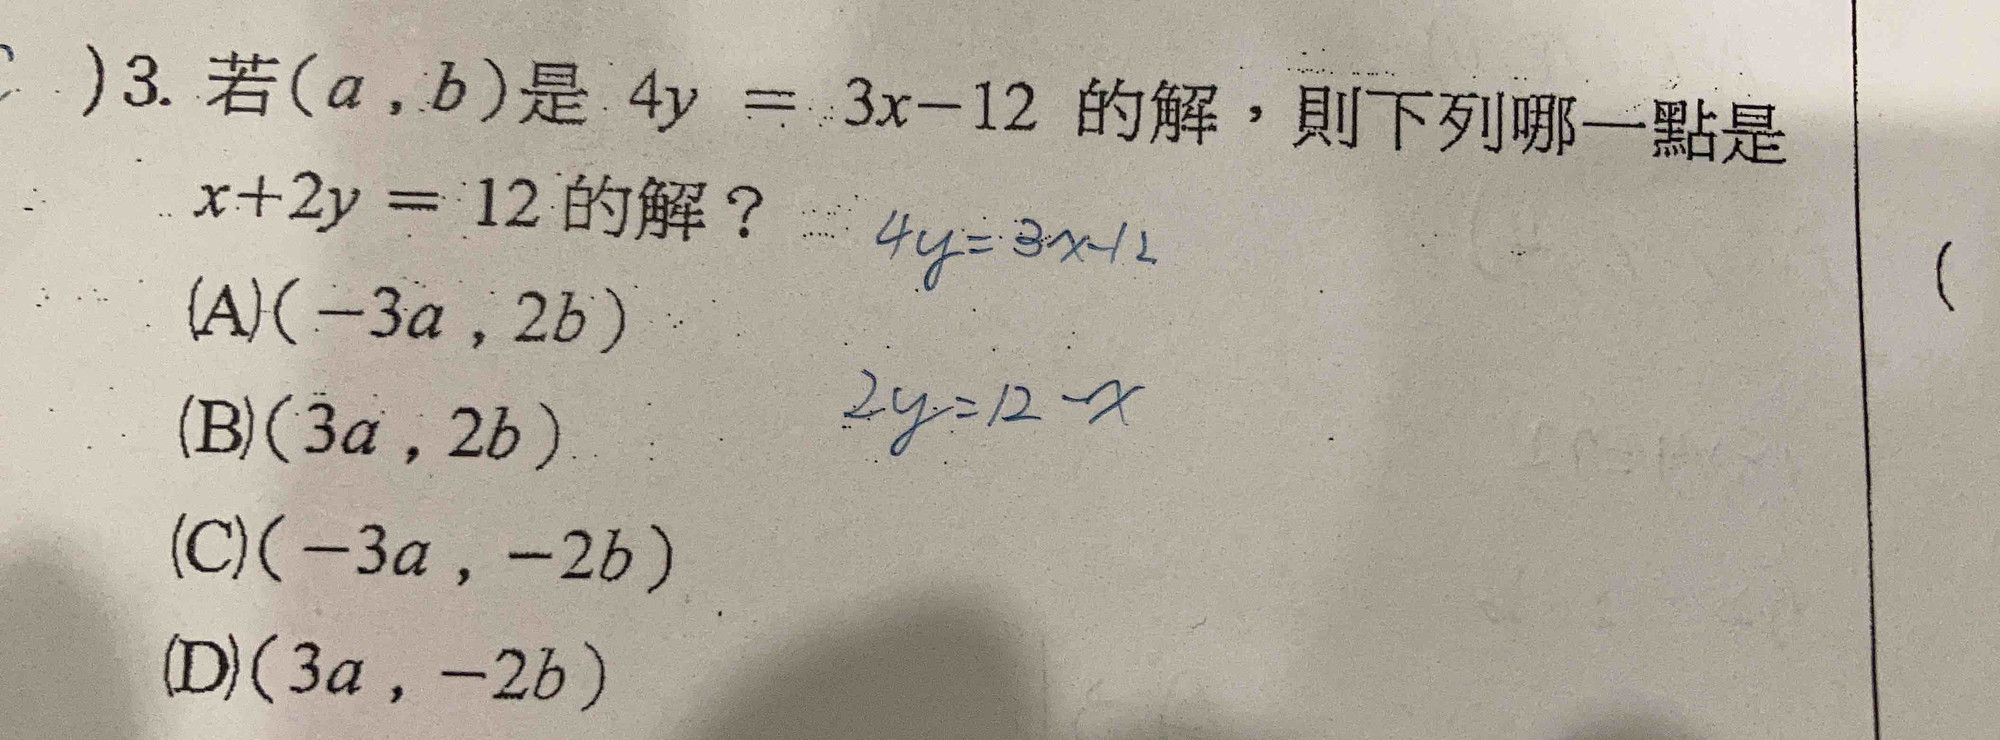 )3. 若(a , b)是 4y = 3x−12 的解，則下列哪一點是
x+2y = 12 的解？
4y=3x-12
(A)(−3a , 2b)
(B)(3a , 2b)
2y=12-x
(C)(−3a , −2b)
(D)(3a , −2b)
(